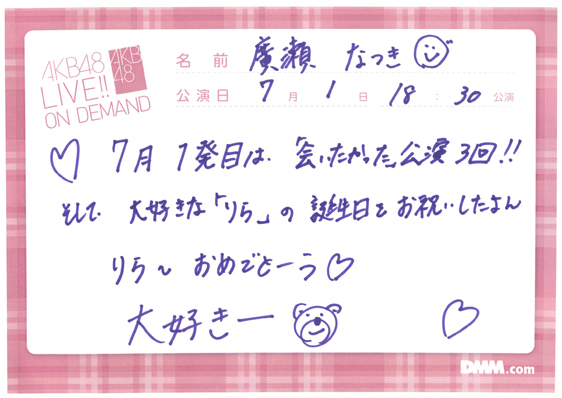 AKB48
LIVE!!
ON DEMAND
AKB
48
名前 廣瀬 なつき
公演日 7月 1日 18:30 公演
7月 1発目は、「会いたかった」公演3回!!
そして 大好きな「りら」の 誕生日を お祝いしたよん
りら〜 おめでとーう
大好きー
DMM.com